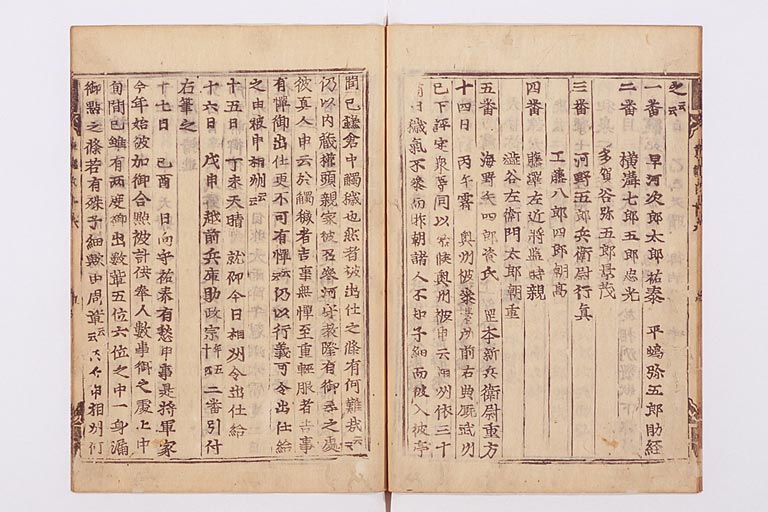 之云云
一番 早河次郎太郎祐泰 平嶋弥五郎助経
二番 横溝七郎五郎忠光
多賀谷弥五郎景茂
三番 河野五郎兵衛尉行真
工藤八郎四郎朝高
四番 藤澤左近将監時親
澁谷左衛門太郎朝重
五番 海野矢四郎資氏 本新兵衛尉重方
十四日 丙午霽 奥州被 前右典厩武州
已下評定衆等 以 候奥州被申云相州依三十
日穢氣不参而昨朝諸人不知子細而被入彼亭
間已鎌倉中觸穢也然者被出仕之條有何難哉云云
仍以内蔵權頭親家 参河守教隆有御 之處
彼真人申云於觸穢者吉事無憚至重軽服者吉事
有憚御出仕更不可有憚云云仍以行義可令出仕給
之由被申相州云云
十五日 丁未天晴 就仰今日相州令出仕給
十六日 戊申 越前兵庫助政宗年五十 二番引付
右筆之
十七日 己酉 日向守祐泰有愁申事是将軍家
今年始被加御合點被計供奉人數事御之處上中
旬間已雖有両度御出數輩五位六位之中一身漏
御點之條若有殊子細歟由問 云云 申相州